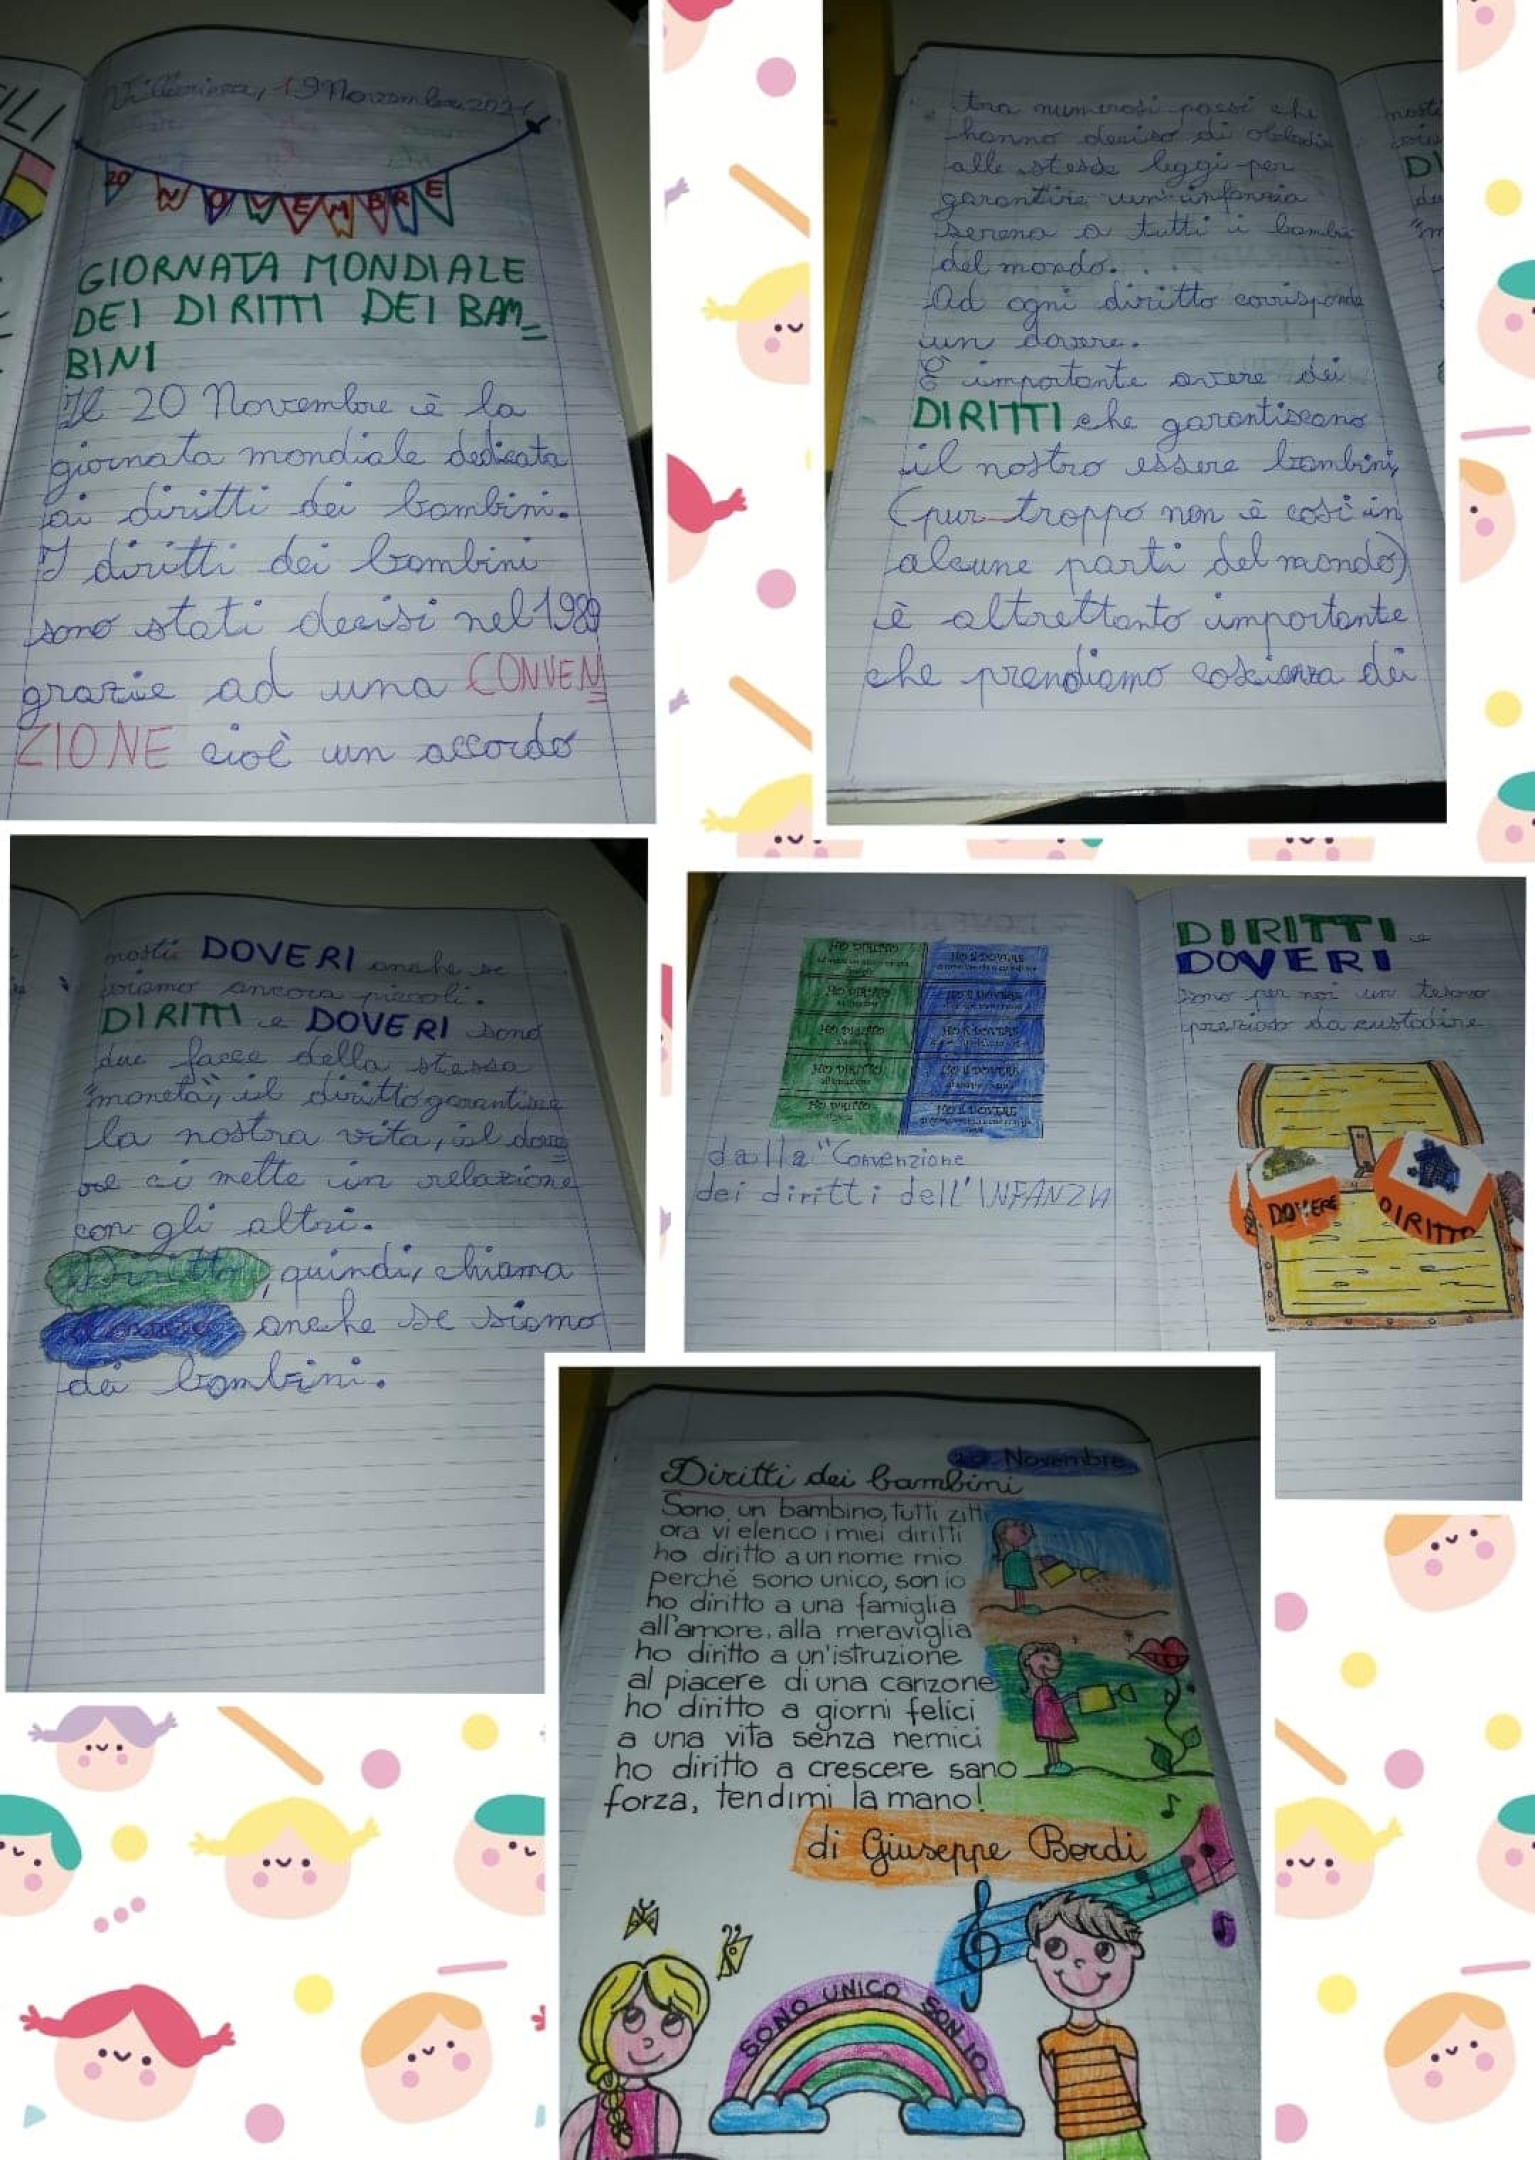 19 Novembre 2021
20 NOVEMBRE
GIORNATA MONDIALE
DEI DIRITTI DEI BAM_
BINI
Il 20 Novembre è la
giornata mondiale dedicata
ai diritti dei bambini.
I diritti dei bambini
sono stati decisi nel 1989
grazie ad una CONVEN=
ZIONE cioè un accordo
tra numerosi paesi che
hanno deciso di obbedi
alle stesse leggi per
garantire un'infanzia
serena a tutti i bambi
del mondo.
Ad ogni diritto corrisponde
un dovere.
È importante avere dei
DIRITTI che garantiscano
il nostro essere bambini,
(pur troppo non è così in
alcune parti del mondo)
è altrettanto importante
che prendiamo coscienza dei
nostri DOVERI anche se
siamo ancora piccoli.
DIRITTI e DOVERI sono
due facce della stessa
"moneta", il diritto garantisce
la nostra vita, il dove=
re ci mette in relazione
con gli altri.
Diritto, quindi, chiama
dovere anche se siamo
dei bambini.
HO DIRITTO HO IL DOVERE
HO DIRITTO HO IL DOVERE
HO DIRITTO HO IL DOVERE
HO DIRITTO HO IL DOVERE
HO DIRITTO HO IL DOVERE
dalla "Convenzione
dei diritti dell'INFANZIA
DIRITTI e
DOVERI
sono per noi un tesoro
prezioso da custodire
DOVERE
DIRITTO
20 Novembre
Diritti dei bambini
Sono un bambino, tutti zitti
ora vi elenco i miei diritti
ho diritto a un nome mio
perché sono unico, son io
ho diritto a una famiglia
all'amore, alla meraviglia
ho diritto a un'istruzione
al piacere di una canzone
ho diritto a giorni felici
a una vita senza nemici
ho diritto a crescere sano
forza, tendimi la mano!
di Giuseppe Bordi
SONO UNICO SON IO